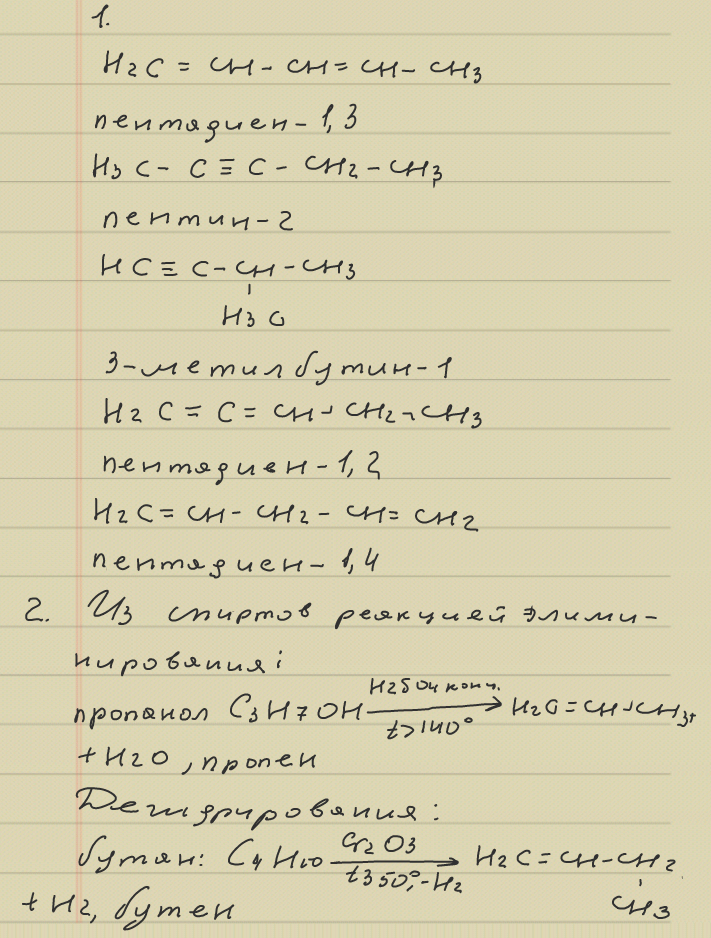 1.
H2C = CH - CH = CH - CH3
пентадиен - 1,3
H3C - C ≡ C - CH2 - CH3
пентин - 2
HC ≡ C - CH - CH3
H3C
3-метилбутин-1
H2C = C = CH - CH2 - CH3
пентадиен - 1,2
H2C = CH - CH2 - CH = CH2
пентадиен - 1,4
2. Из спиртов реакцией элими-
нирования:
пропанол C3H7OH H2SO4 конц. t>140° → H2C = CH - CH3 +
+ H2O, пропен
Дегидрирования:
бутан: C4H10 Cr2O3 t350°, -H2 → H2C = CH - CH2
CH3
+ H2, бутен